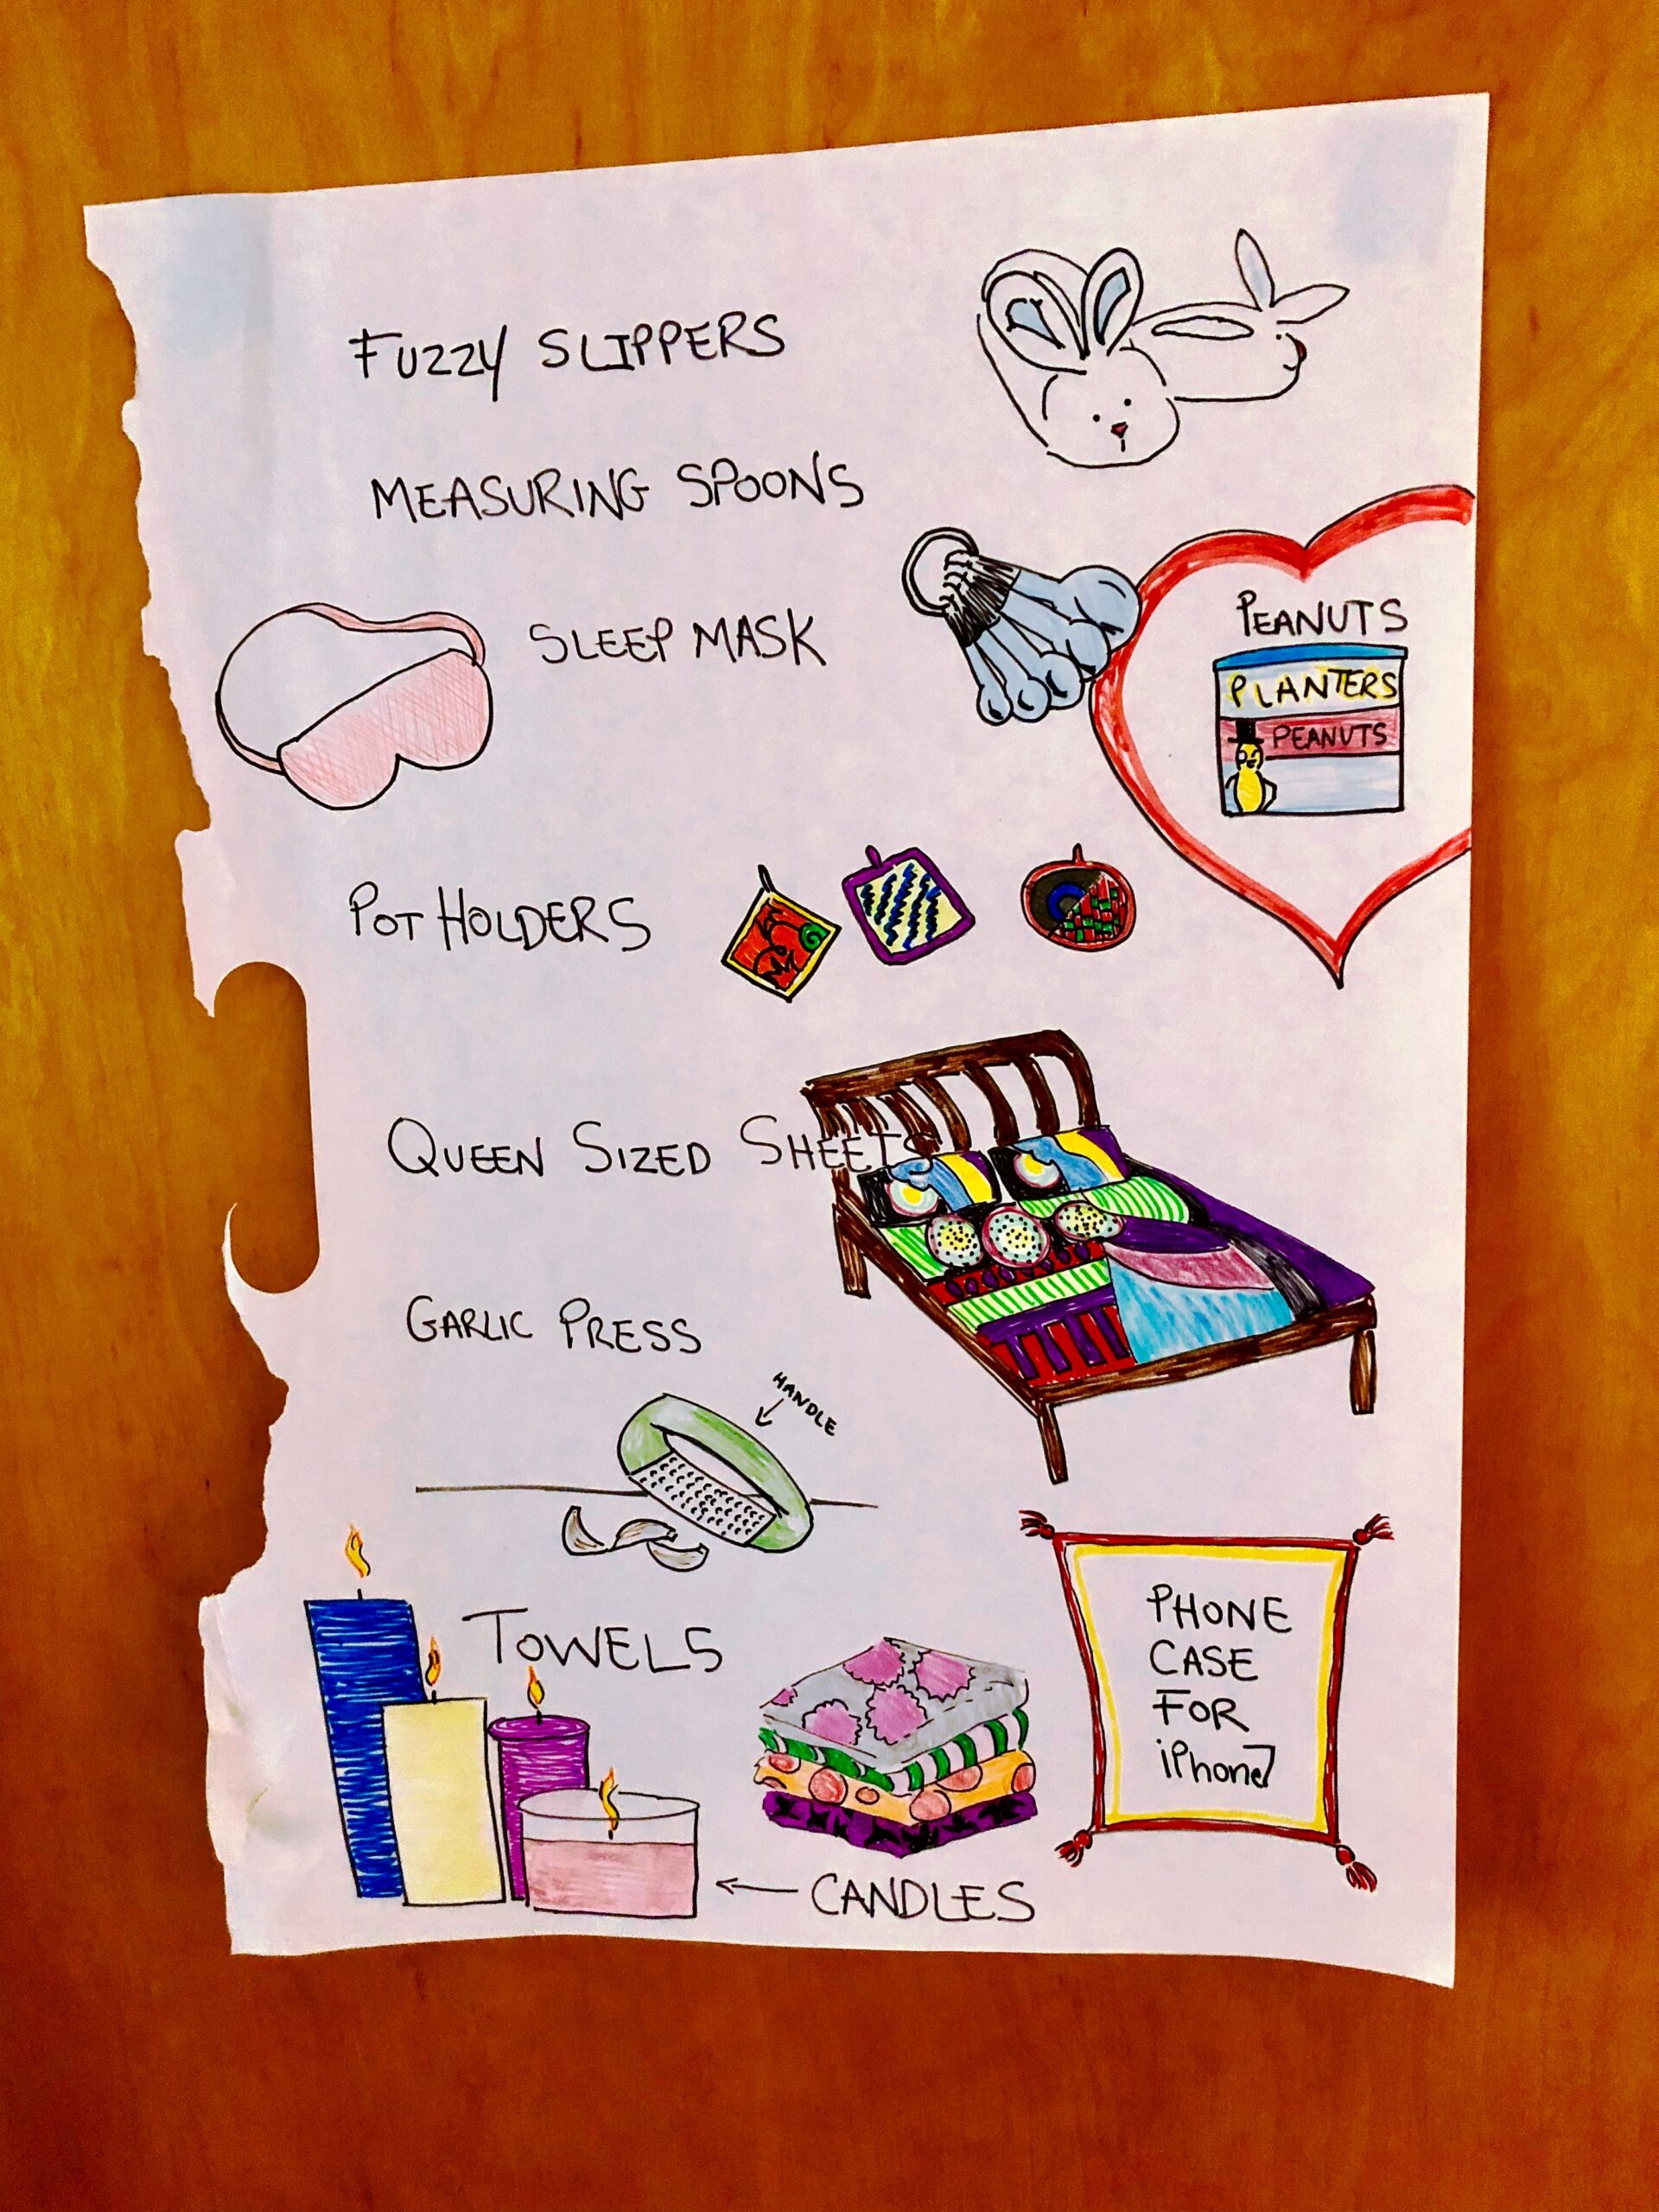 FUZZY SLIPPERS
MEASURING SPOONS
PEANUTS
SLEEP MASK
PLANTERS
PEANUTS
POT HOLDERS
QUEEN SIZED SHEETS
GARLIC PRESS
HANDLE
TOWELS
PHONE
CASE
FOR
iPhone7
CANDLES